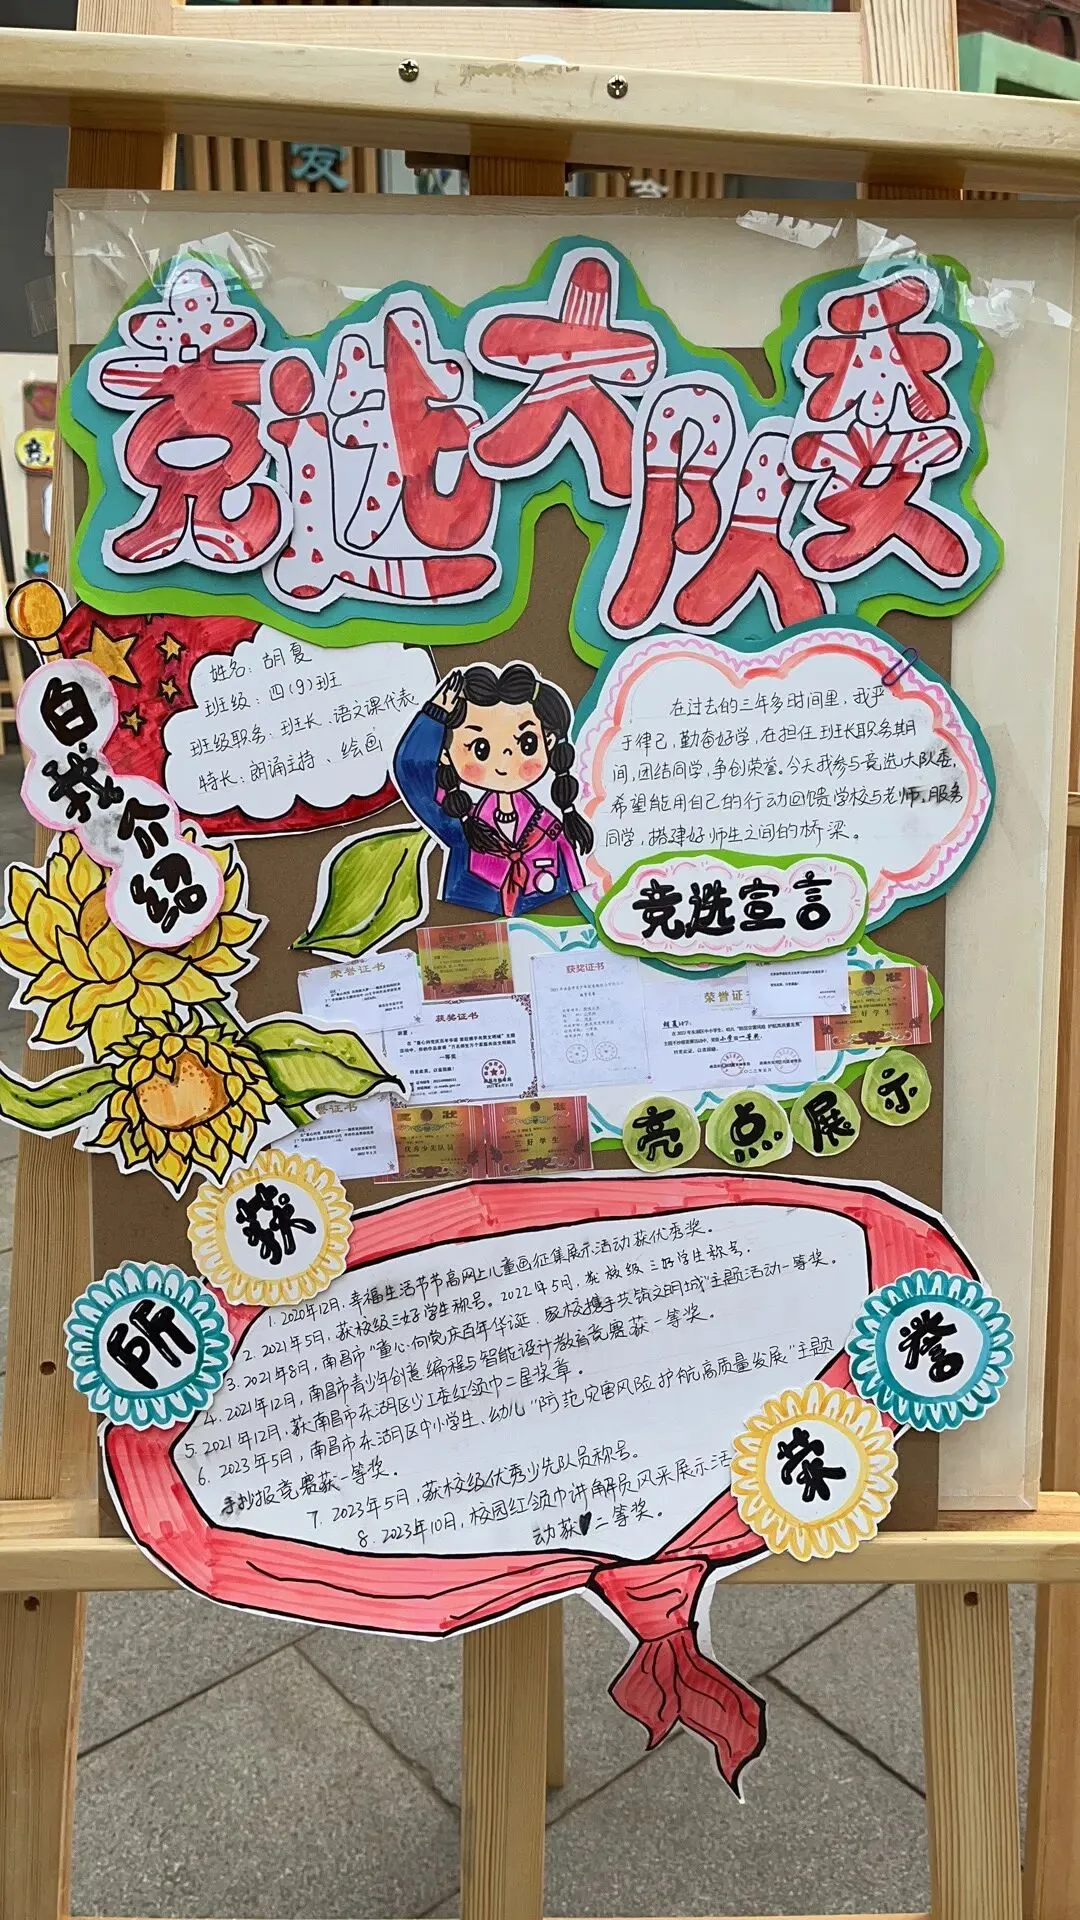 竞选大队委
自我介绍
姓名：胡夏
班级：四(9)班
班级职务：班长、语文课代表
特长：朗诵主持、绘画
在过去的三年多时间里，我严
于律己，勤奋好学，在担任班长职务期
间，团结同学，争创荣誉。今天我参与竞选大队委，
希望能用自己的行动回馈学校与老师，服务
同学，搭建好师生之间的桥梁。
竞选宣言
荣誉证书
获奖证书
获奖证书
荣誉证
一等奖
三好学生
优秀少先队员
三好学生
亮点展示
所获荣誉
1. 2020年12月，幸福生活节节高网上儿童画征集展示活动获优秀奖。
2. 2021年5月，获校级三好学生称号。2022年5月，获校级三好学生称号。
3. 2021年8月，南昌市“童心向党庆百年华诞，家校携手共筑文明城”主题活动一等奖。
4. 2021年12月，南昌市青少年创造编程与智能设计教育竞赛获一等奖。
5. 2021年12月，获南昌市东湖区少工委红领巾二星奖章。
6. 2023年5月，南昌市东湖区中小学生、幼儿“防范灾害风险护航高质量发展”主题
手抄报竞赛获一等奖。
7. 2023年5月，获校级优秀少先队员称号。
8. 2023年10月，校园红领巾讲解员风采展示活
动获二等奖。